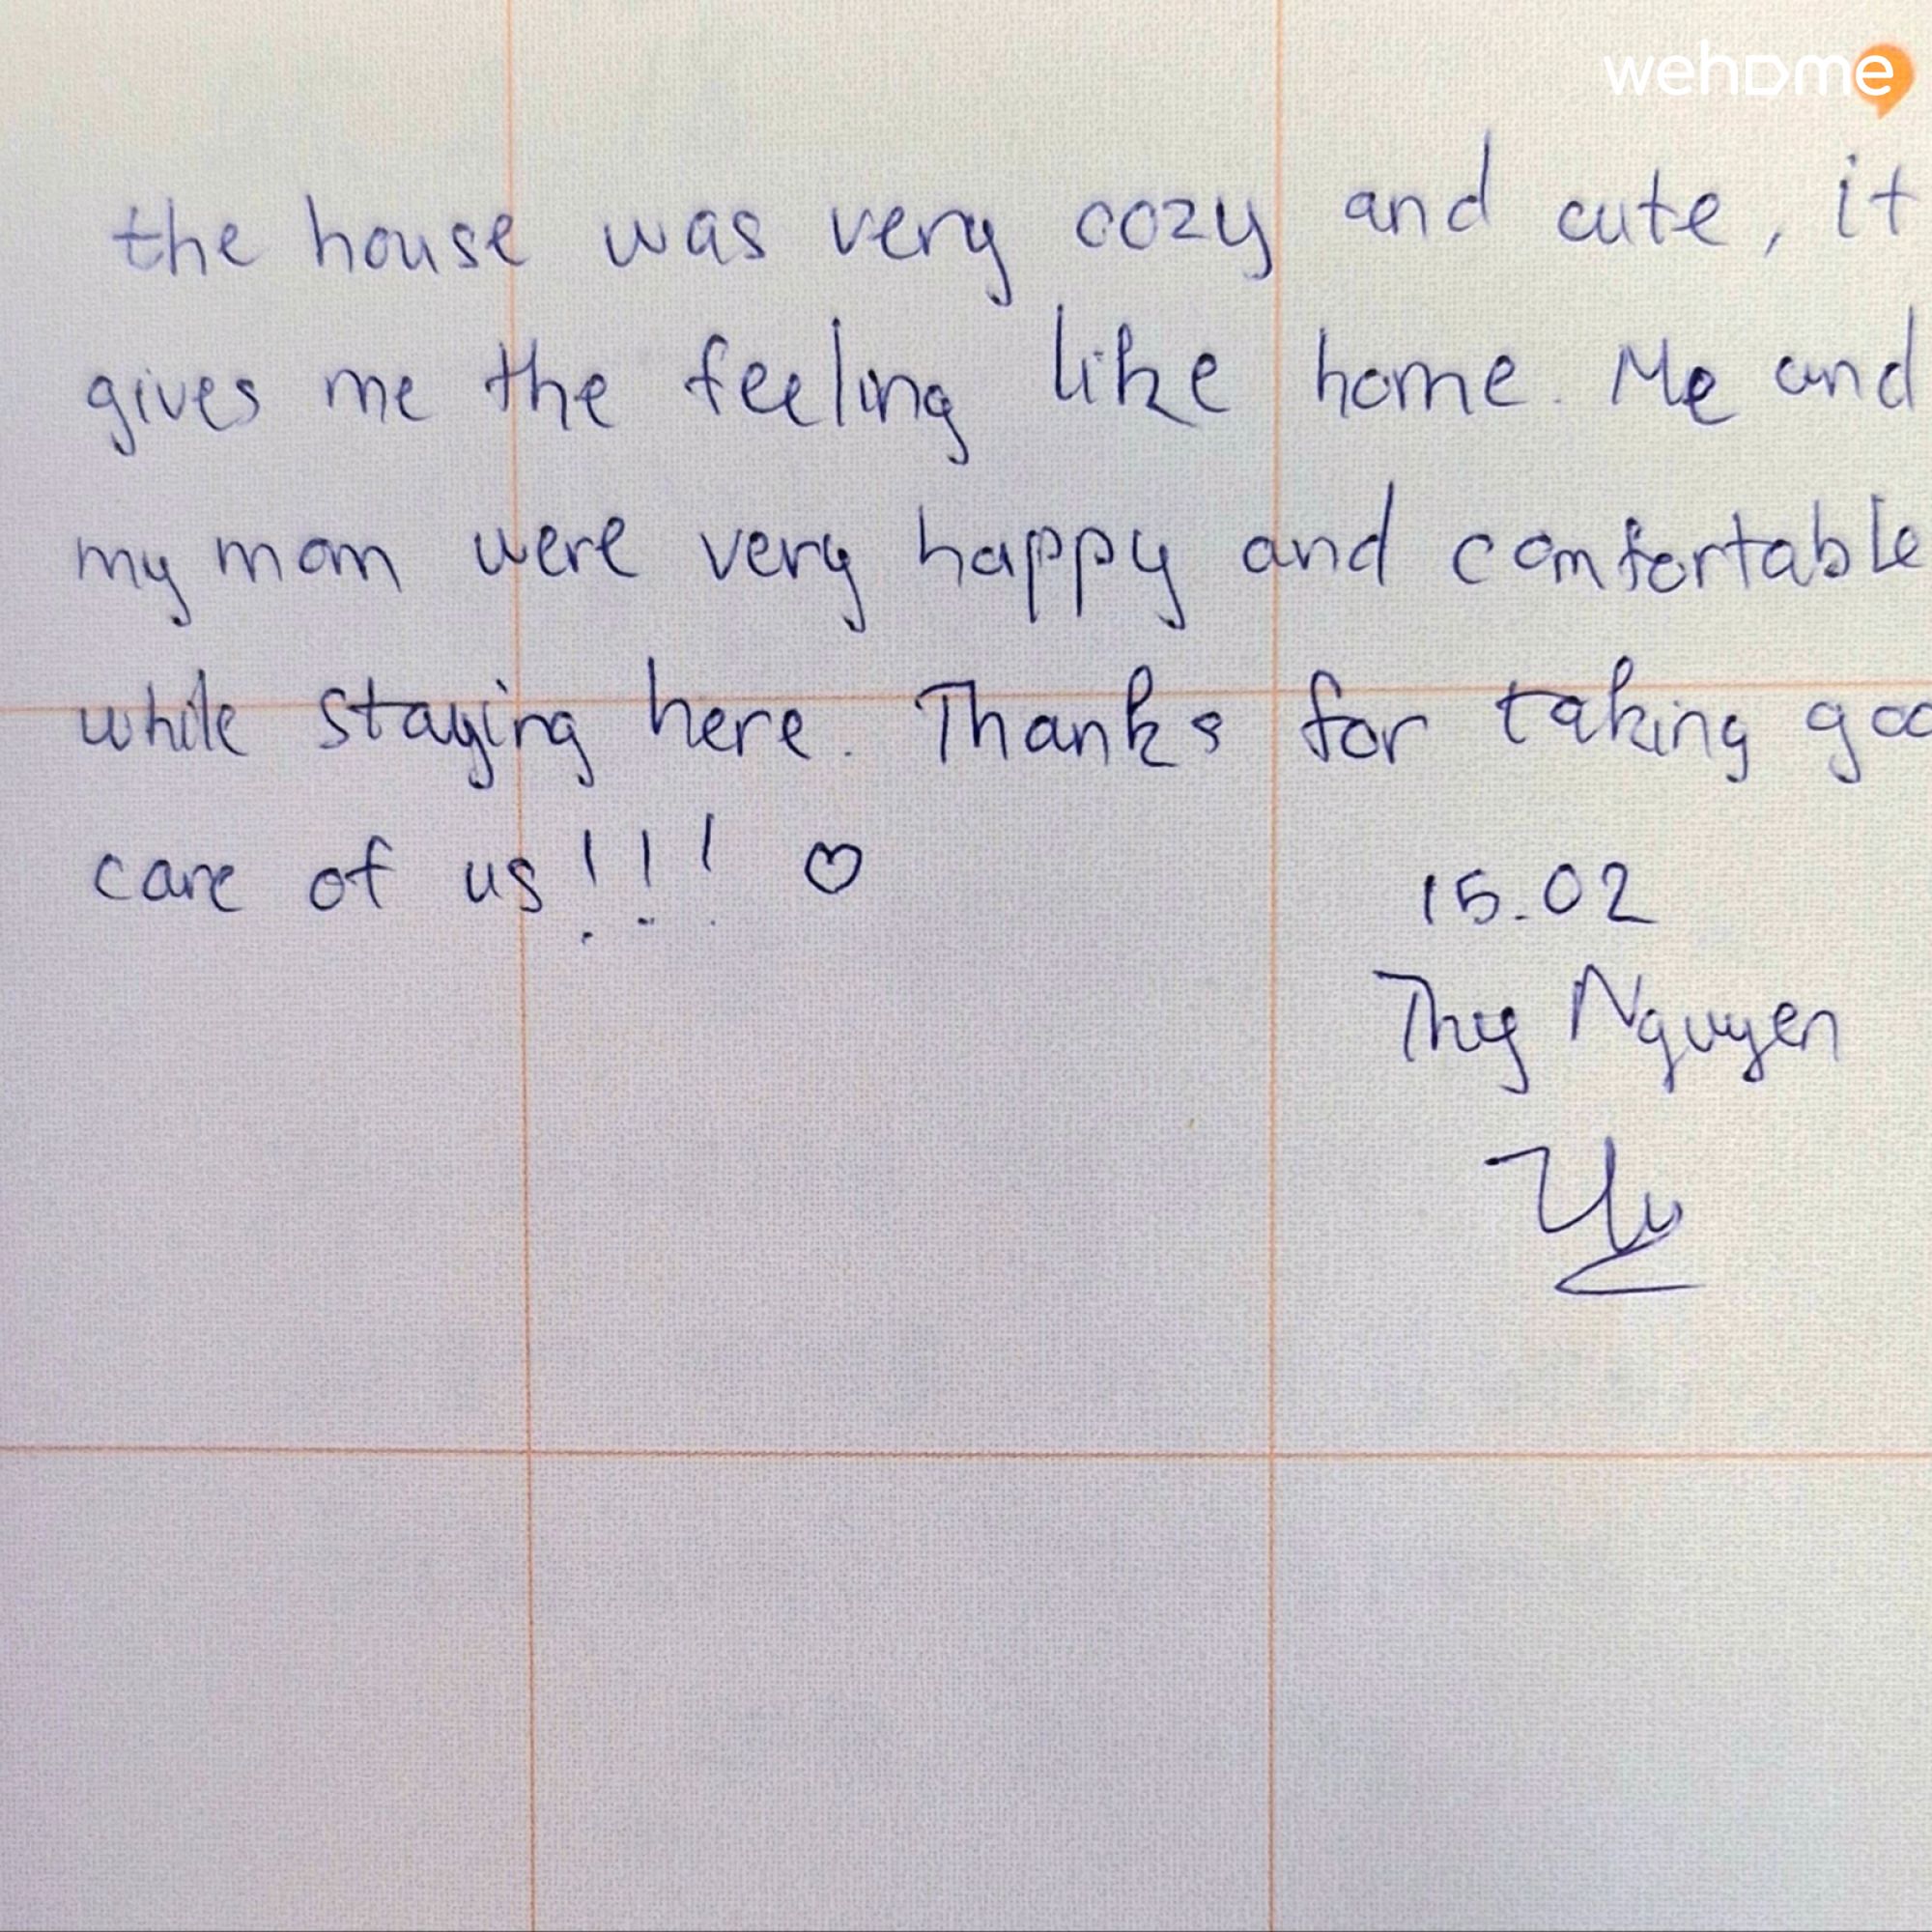 wehome
the house was very cozy and cute, it
gives me the feeling like home. Me and
my mom were very happy and comfortable
while staying here. Thanks for taking goo
care of us!!! ♡
15.02
Thy Nguyen